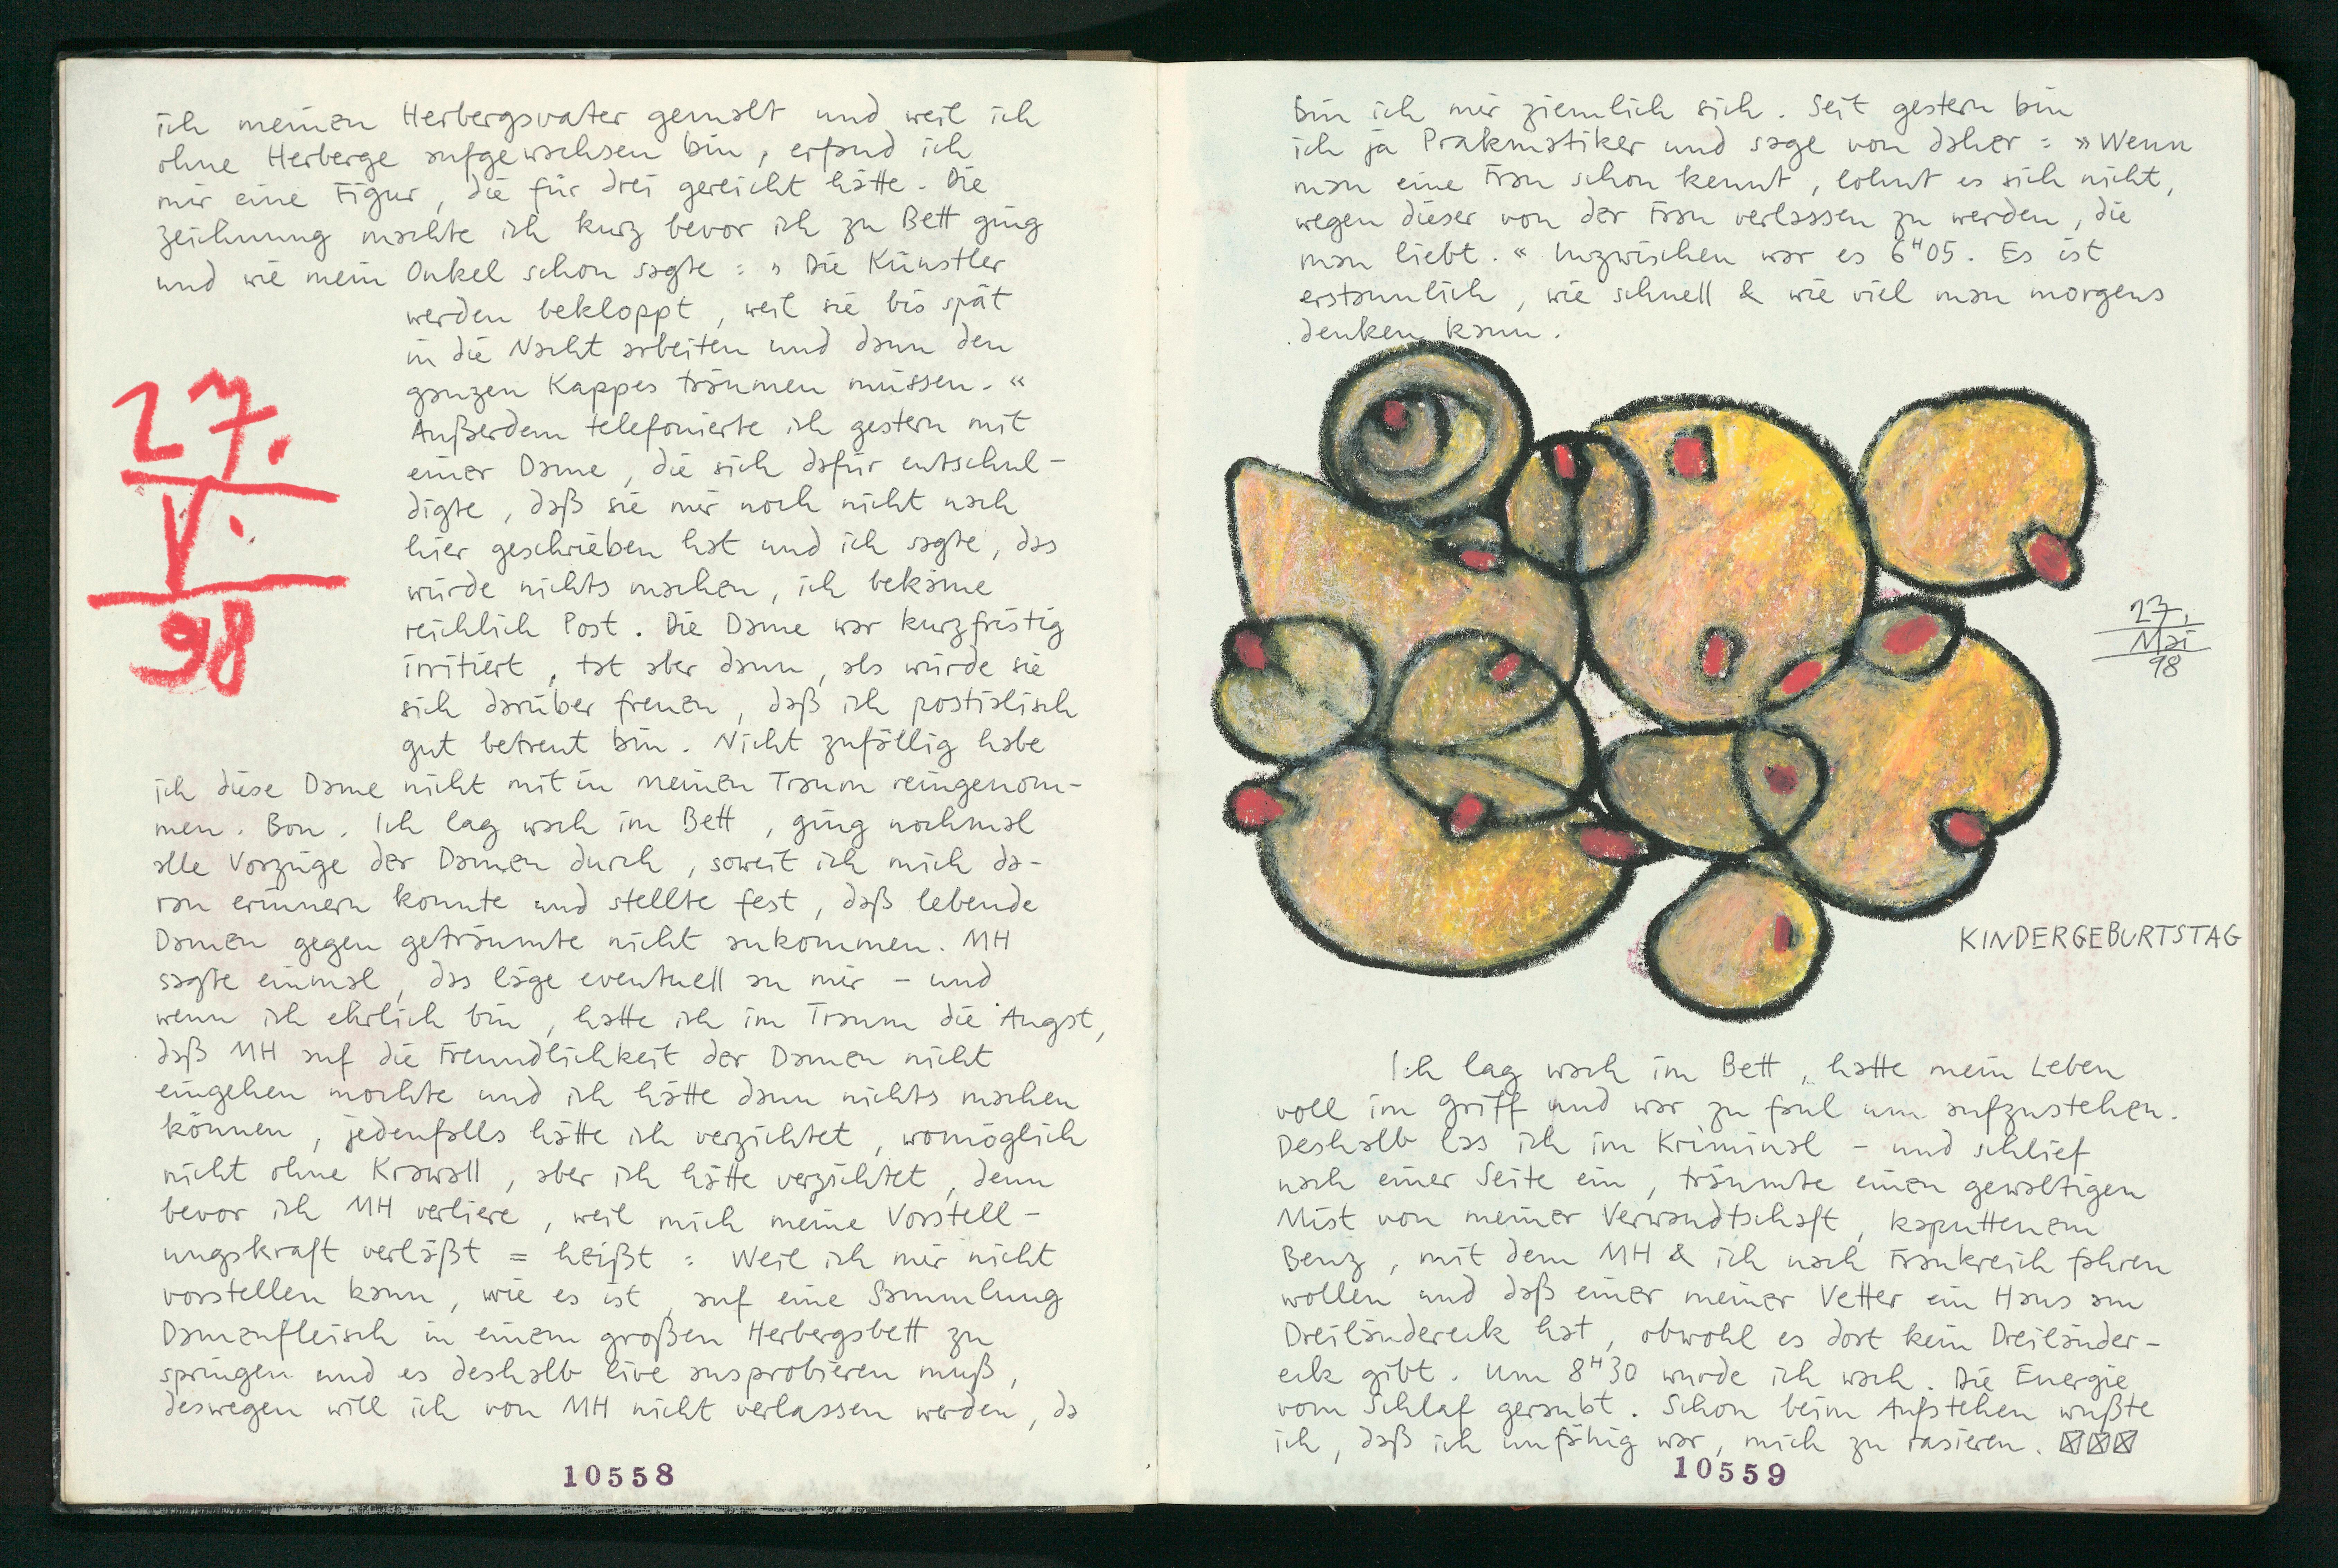 ich meinen Herbergsvater gemalt und weil ich
ohne Herberge aufgewachsen bin, erfand ich
mir eine Figur, die für drei gereicht hätte. Die
Zeichnung machte ich kurz bevor ich zu Bett ging
und wie mein Onkel schon sagte: »Die Künstler
werden bekloppt, weil sie bis spät
in die Nacht arbeiten und dann den
ganzen Kappes träumen müssen.«
Außerdem telefonierte ich gestern mit
einer Dame, die sich dafür entschul-
digte, daß sie mir noch nicht nach
hier geschrieben hat und ich sagte, das
würde nichts machen, ich bekäme
reichlich Post. Die Dame war kurzfristig
irritiert, tat aber dann, als würde sie
sich darüber freuen, daß ich postialisch
gut betreut bin. Nicht zufällig habe
27.
V.
98
ich diese Dame nicht mit in meinen Traum reingenom-
men. Bon. Ich lag wach im Bett, ging nochmal
alle Vorzüge der Damen durch, soweit ich mich da-
ran erinnern konnte und stellte fest, daß lebende
Damen gegen geträumte nicht ankommen. MH
sagte einmal, das läge eventuell an mir – und
wenn ich ehrlich bin, hatte ich im Traum die Angst,
daß MH auf die Freundlichkeit der Damen nicht
eingehen mochte und ich hätte dann nichts machen
können, jedenfalls hätte ich verzichtet, womöglich
nicht ohne Krawall, aber ich hätte verzichtet, denn
bevor ich MH verliere, weil mich meine Vorstell-
ungskraft verläßt = heißt: Weil ich mir nicht
vorstellen kann, wie es ist, auf eine Sammlung
Damenfleisch in einem großen Herbergsbett zu
springen und es deshalb live ausprobieren muß,
deswegen will ich von MH nicht verlassen werden, da
10558
bin ich mir ziemlich sich. Seit gestern bin
ich ja Prakmatiker und sage von daher: »Wenn
man eine Frau schon kennt, lohnt es sich nicht,
wegen dieser von der Frau verlassen zu werden, die
man liebt.« Inzwischen war es 6H05. Es ist
erstaunlich, wie schnell & wie viel man morgens
denken kann.
27.
Mai
98
KINDERGEBURTSTAG
Ich lag wach im Bett, hatte mein Leben
voll im Griff und war zu faul um aufzustehen.
Deshalb las ich im Kriminal – und schlief
nach einer Seite ein, träumte einen gewaltigen
Mist von meiner Verwandtschaft, kaputtenem
Benz, mit dem MH & ich nach Frankreich fahren
wollen und daß einer meiner Vetter ein Haus am
Dreiländereck hat, obwohl es dort kein Dreiländer-
eck gibt. Um 8H30 wurde ich wach. Die Energie
vom Schlaf geraubt. Schon beim Aufstehen wußte
ich, daß ich unfähig war, mich zu rasieren. ☒☒☒
10559